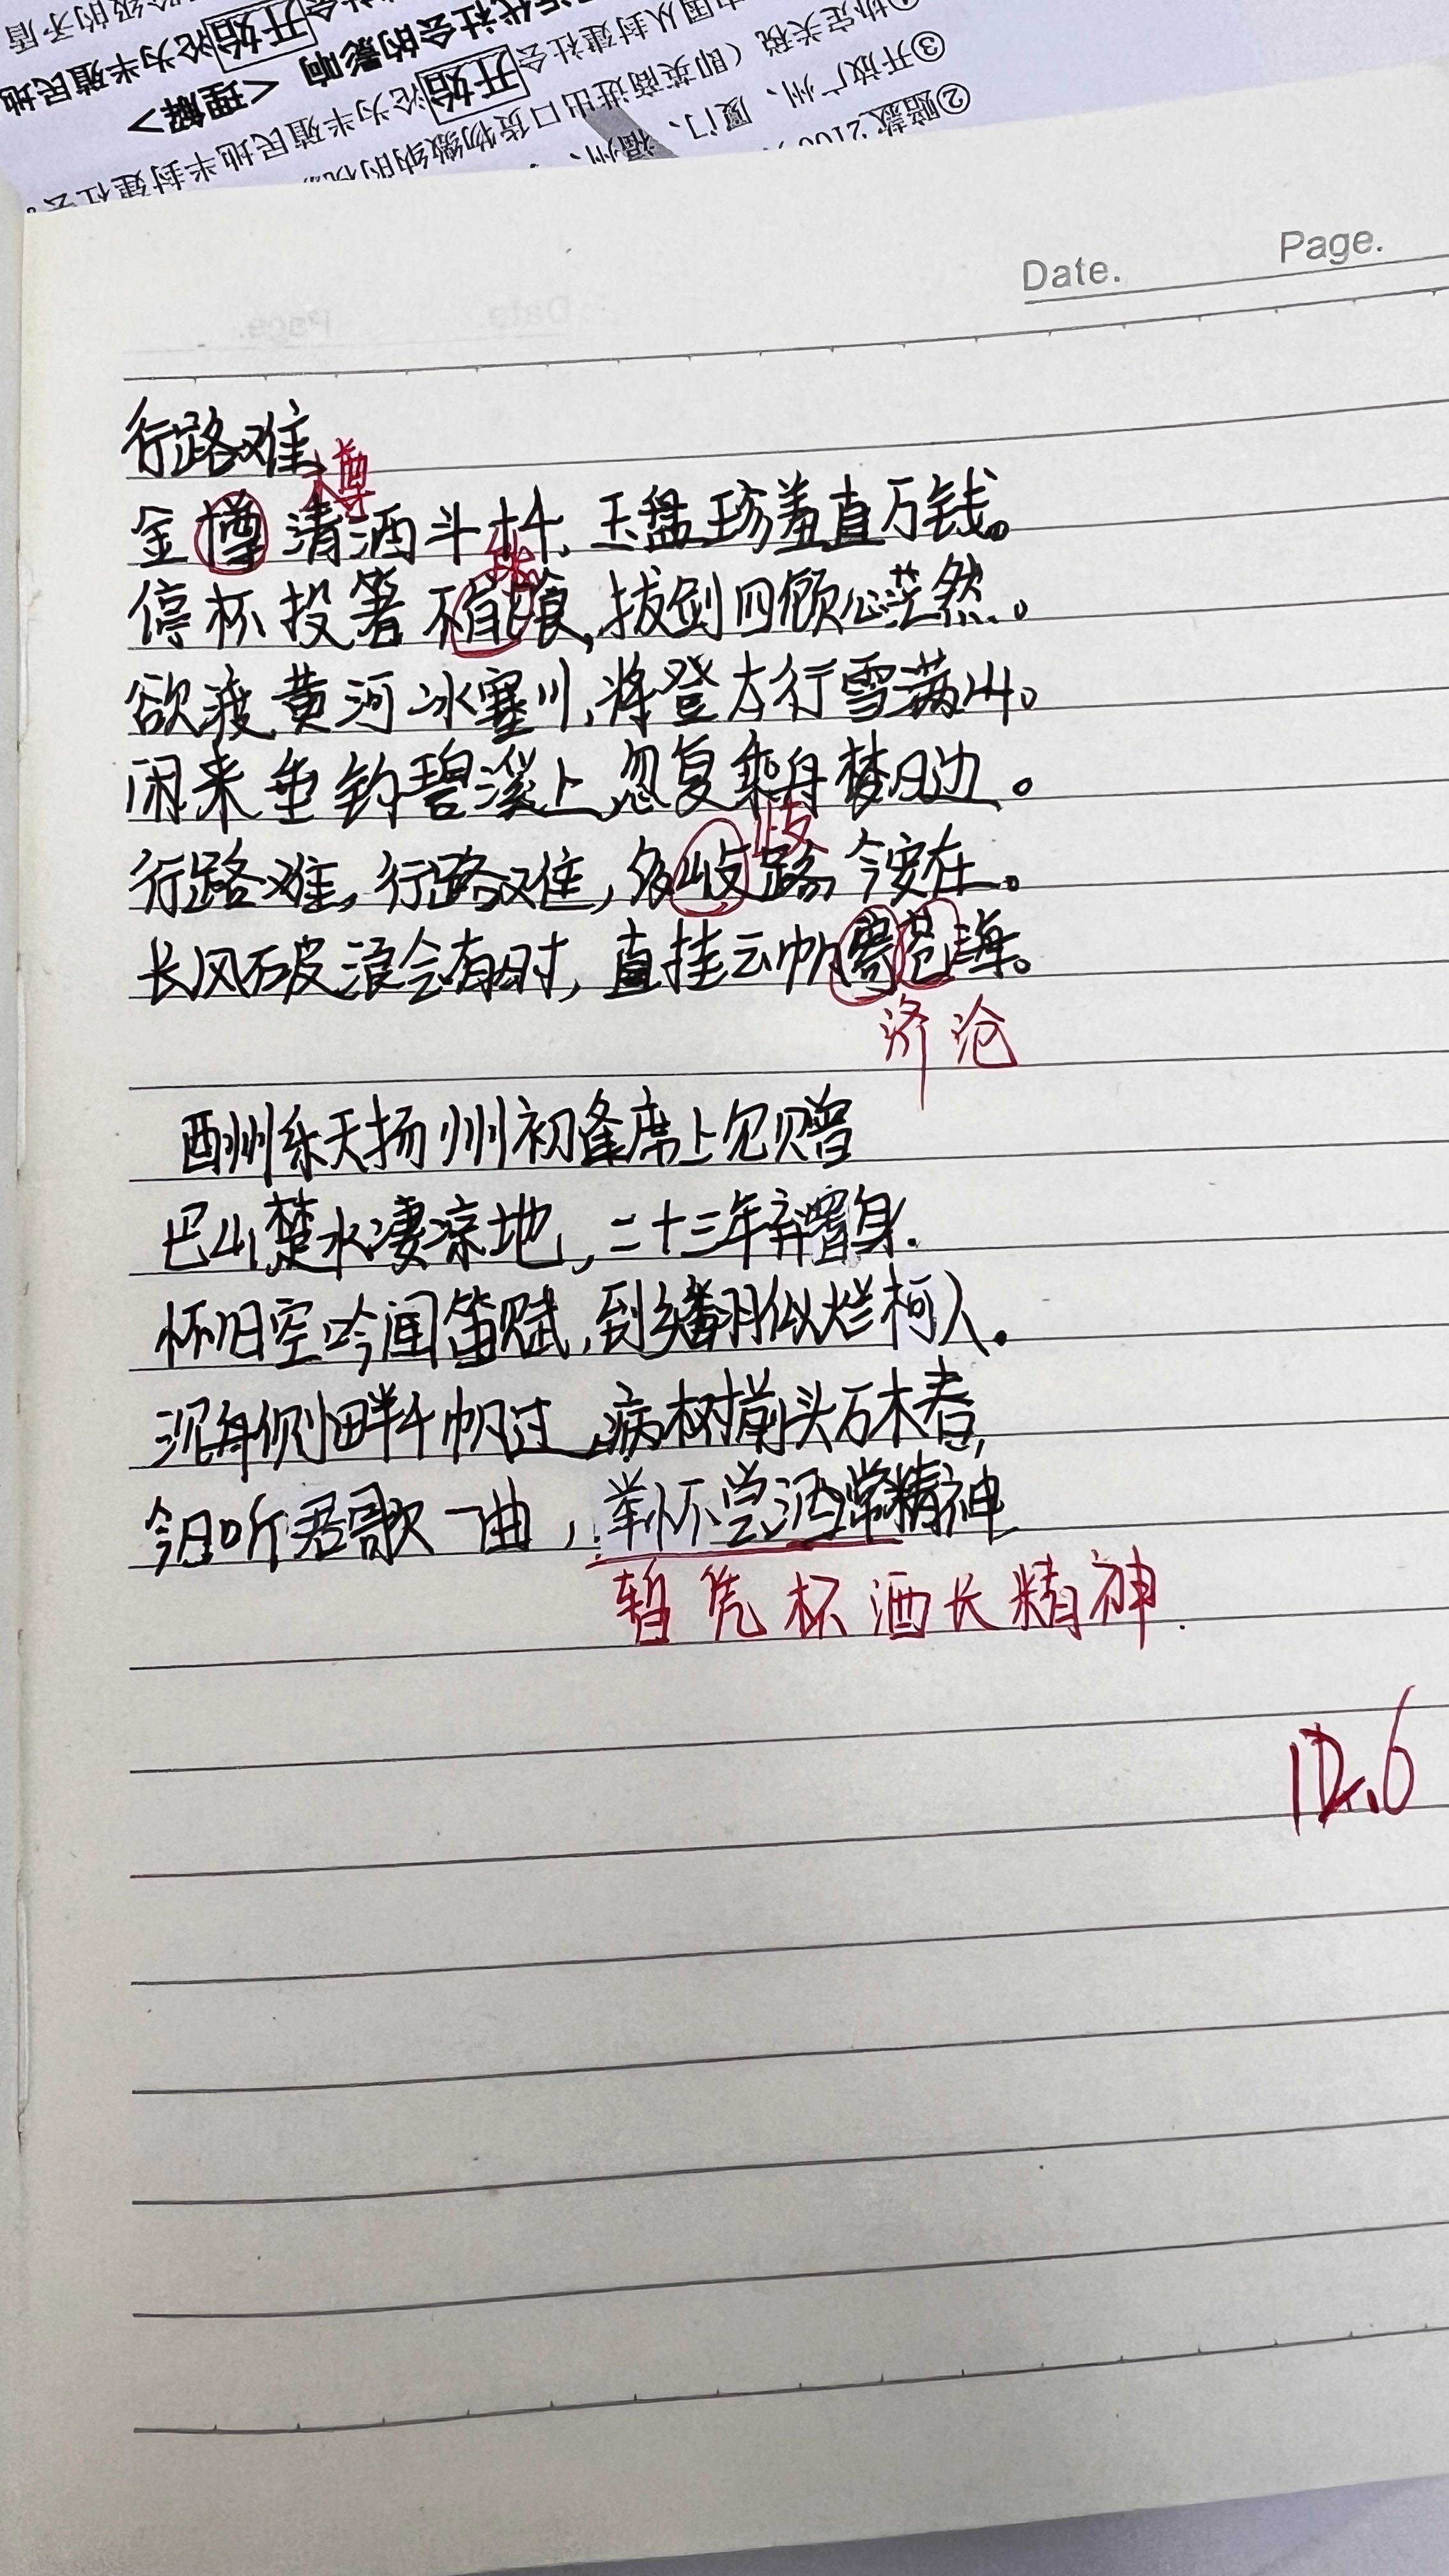 ②赔款2100
③开放广州、厦门、福州、
协定关税（即英商进出口货物缴纳的税
国从封建社会开始沦为半殖民地半封建社会。
近代社会的影响 <理解>
开始沦为半殖民地
Date. Page.
行路难
樽
金樽清酒斗千,玉盘珍羞直万钱。
停杯投箸不能食,拔剑四顾心茫然。
欲渡黄河冰塞川,将登太行雪满山。
闲来垂钓碧溪上,忽复乘舟梦日边。
歧
行路难,行路难,多岐路,今安在。
长风破浪会有时,直挂云帆霁苍海。
济沧
酬州乐天扬州初逢席上见赠
巴山楚水凄凉地,二十三年弃置身.
怀旧空吟闻笛赋,到乡翻似烂柯人.
沉舟侧畔千帆过,病树前头万木春,
今日听君歌一曲,举杯尝酒常精神
暂凭杯酒长精神.
12.6